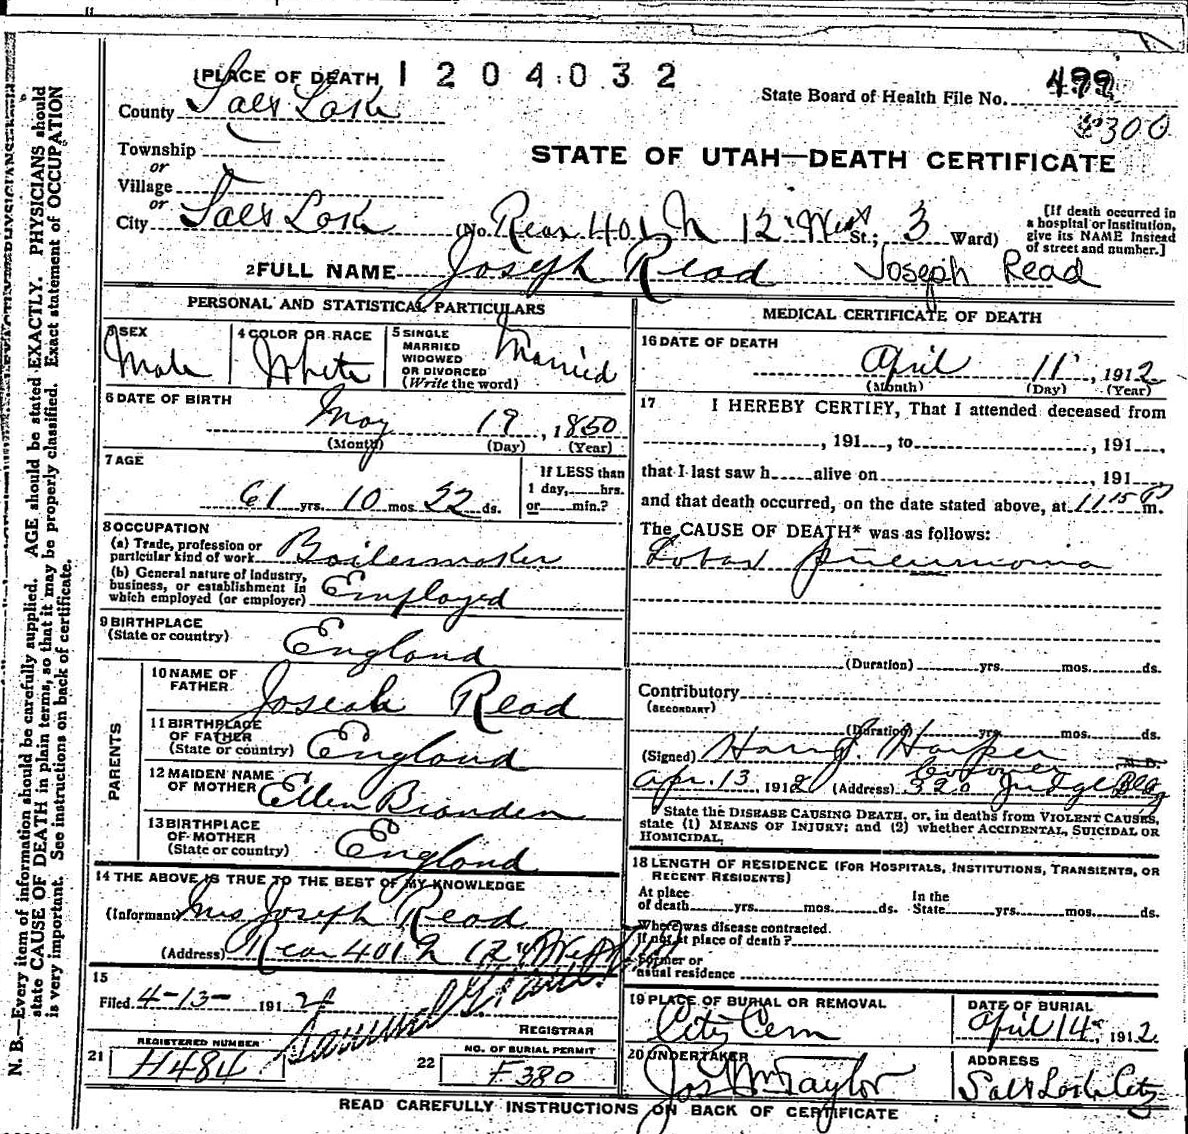 1 PLACE OF DEATH 1204032
County Salt Lake
State Board of Health File No. 499
4300
Township
or
Village
or
STATE OF UTAH—DEATH CERTIFICATE
City Salt Lake (No. Rear 401 N 12" West St.; 3 Ward)
[If death occurred in a hospital or institution, give its NAME instead of street and number.]
2 FULL NAME Joseph Read Joseph Read
PERSONAL AND STATISTICAL PARTICULARS
3 SEX Male
4 COLOR OR RACE White
5 SINGLE MARRIED WIDOWED OR DIVORCED (Write the word) Married
6 DATE OF BIRTH May 19, 1850
(Month) (Day) (Year)
7 AGE 61 yrs. 10 mos. 22 ds.
If LESS than 1 day, hrs. or min.?
8 OCCUPATION
(a) Trade, profession or particular kind of work Boilermaker
(b) General nature of industry, business, or establishment in which employed (or employer) Employed
9 BIRTHPLACE (State or country) England
PARENTS
10 NAME OF FATHER Joseah Read
11 BIRTHPLACE OF FATHER (State or country) England
12 MAIDEN NAME OF MOTHER Ellen Branden
13 BIRTHPLACE OF MOTHER (State or country) England
14 THE ABOVE IS TRUE TO THE BEST OF MY KNOWLEDGE
(Informant) Mrs Joseph Read
(Address) Rear 401 N 12" West
15
Filed 4-13- 191 2
REGISTRAR
21 REGISTERED NUMBER H484
22 NO. OF BURIAL PERMIT F380
MEDICAL CERTIFICATE OF DEATH
16 DATE OF DEATH
April 11, 1912
(Month) (Day) (Year)
17 I HEREBY CERTIFY, That I attended deceased from
, 191 , to , 191 ,
that I last saw h alive on , 191
and that death occurred, on the date stated above, at 11 15 P m.
The CAUSE OF DEATH* was as follows:
Lobar pneumonia
(Duration) yrs. mos. ds.
Contributory
(SECONDARY)
(Duration) yrs. mos. ds.
(Signed) Harry J. Harper M. D.
Coroner
Apr. 13, 1912 (Address) 320 Judge Bldg
*State the DISEASE CAUSING DEATH, or, in deaths from VIOLENT CAUSES, state (1) MEANS OF INJURY; and (2) whether ACCIDENTAL, SUICIDAL OR HOMICIDAL.
18 LENGTH OF RESIDENCE (FOR HOSPITALS, INSTITUTIONS, TRANSIENTS, OR RECENT RESIDENTS)
At place of death yrs. mos. ds. In the State yrs. mos. ds.
Where was disease contracted. If not at place of death?
Former or usual residence
19 PLACE OF BURIAL OR REMOVAL City Cem
DATE OF BURIAL April 14, 1912.
20 UNDERTAKER Jos Wm Taylor
ADDRESS Salt Lake City
READ CAREFULLY INSTRUCTIONS ON BACK OF CERTIFICATE
N. B.—Every item of information should be carefully supplied. AGE should be stated EXACTLY. PHYSICIANS should
state CAUSE OF DEATH in plain terms, so that it may be properly classified. Exact statement of OCCUPATION
is very important. See instructions on back of certificate.